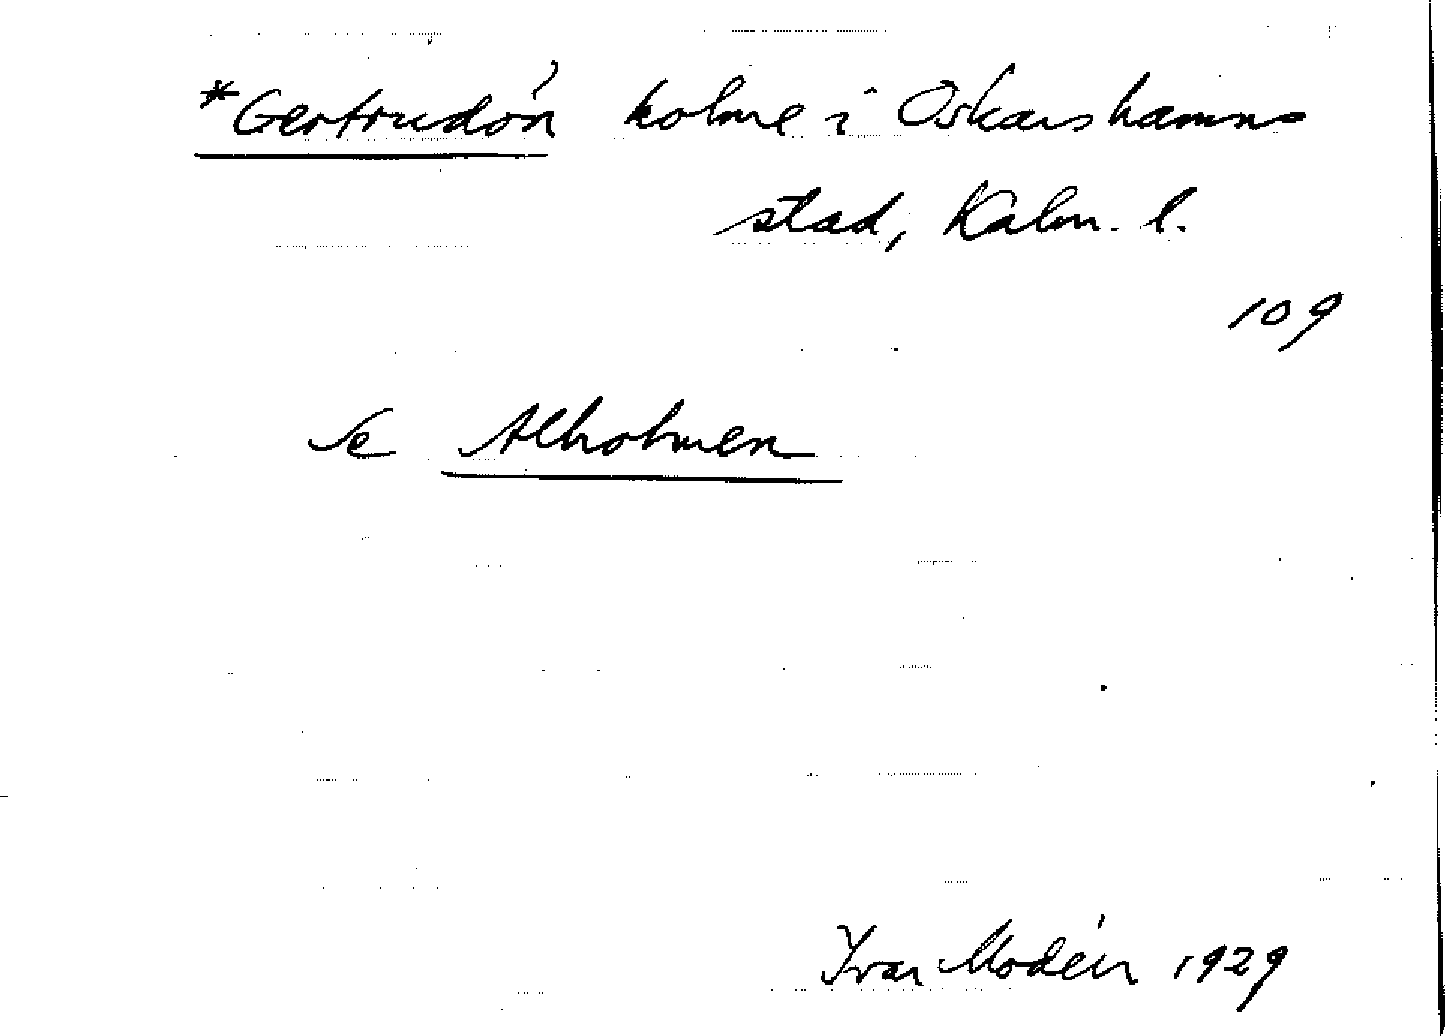 *Gertrudön holme i Oskarshamns
stad, Kalm. l.
109
Se Alholmen
Ivar Modéer 1929